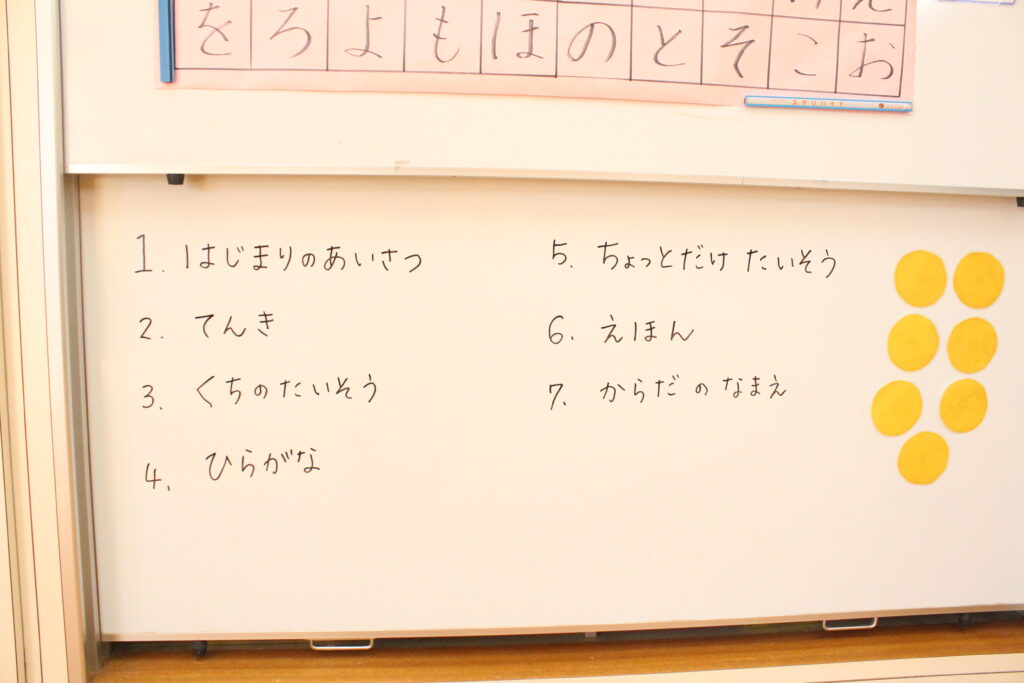 を ろ よ も ほ の と そ こ お
ステリハイド
1. はじまりのあいさつ
2. てんき
3. くちのたいそう
4. ひらがな
5. ちょっとだけ たいそう
6. えほん
7. からだ の なまえ